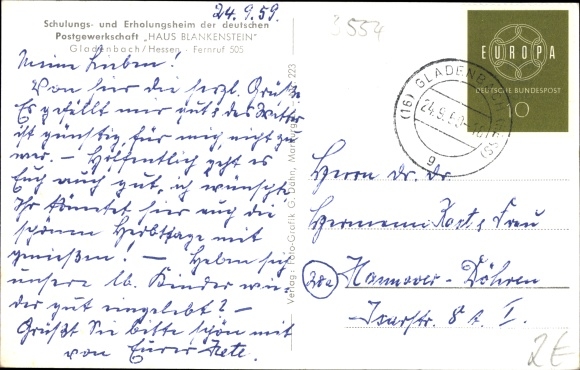 24.9.59.
3554
Schulungs- und Erholungsheim der deutschen
Postgewerkschaft „HAUS BLANKENSTEIN"
Gladenbach/Hessen - Fernruf 505
Meine Lieben!
Von hier die herzl. Grüße.
Es gefällt mir gut & das Wetter
ist günstig für mich, nicht zu
warm. — Hoffentlich geht es
Euch auch gut, ich wünschte
Ihr könntet hier auch die
schönen Herbsttage mit
genießen! — Haben sich
unsere lb. Kinder wie-
der gut eingelebt? —
Grüßt Sie bitte schön mit
von Eurer Käte.
Verlag: Foto-Grafik G. Dahn, Marburg 223
EUROPA
DEUTSCHE BUNDESPOST
10
(16) GLADENBACH
24.9.60
g
Herrn Dr. Dr.
Hermann & Frau
20a Hannover-Döhren
Isarstr. 8 A. I.
2€